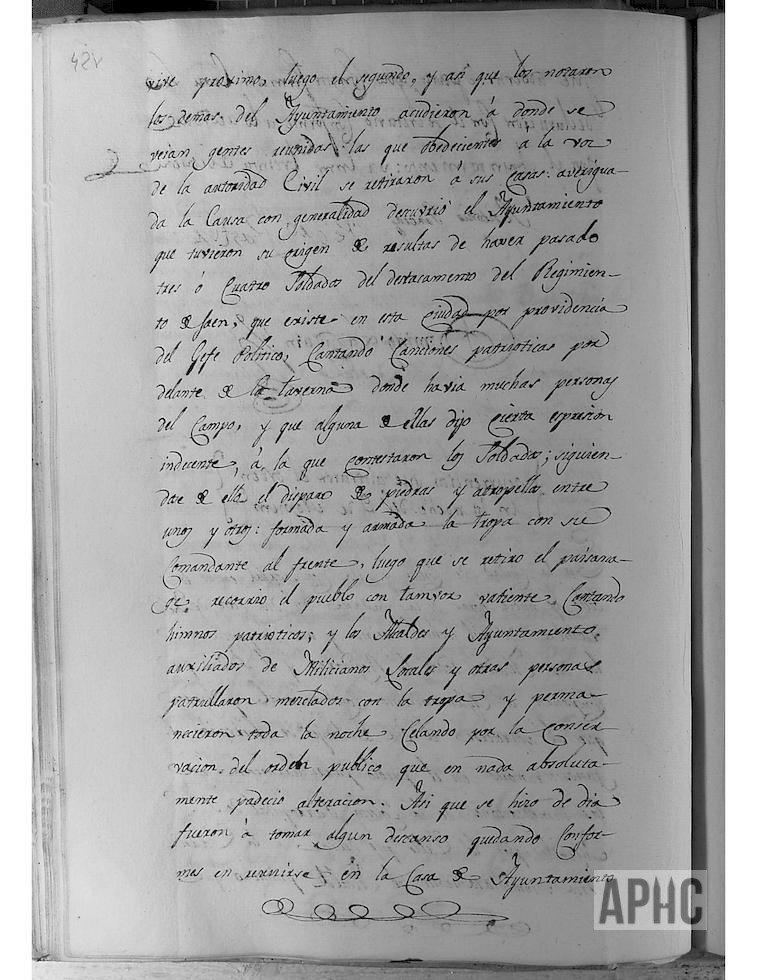 42v
vive proximo, luego el segundo, y asi que los notaron
los demas del Ayuntamiento acudieron á donde se
veian gentes reunidas las que obedecientes á la voz
de la autoridad Civil se retiraron á sus Casas: averigua-
da la Causa con generalidad descuvrió el Ayuntamiento
que tuvieron su origen de resultas de haver pasado
tres ó Cuatro Soldados del destacamento del Regimien-
to de Jaen, que existe en esta Ciudad por providencia
del Gefe Politico, Cantando Canciones patrioticas por
delante de la taverna donde havia muchas personas
del Campo, y que alguna de ellas dijo Cierta espresion
indecente, á la que Contestaron los Soldados; siguien-
dose de ello el disparo de piedras y atropellos entre
unos y otros: formada y armada la tropa con su
Comandante al frente, luego que se retiro el paisana-
ge, recorrio el pueblo con tamvor vatiente, Cantando
himnos patrioticos; y los Alcaldes y Ayuntamiento,
auxiliados de Milicianos Locales y otras personas
patrullaron mezclados con la tropa y perma-
necieron toda la noche Celando por la Conser-
vacion del orden publico que en nada absoluta-
mente padecio alteracion. Asi que se hizo de dia
fueron á tomar algun descanso quedando Confor-
mes en reunirse en la Casa de Ayuntamiento
APHC